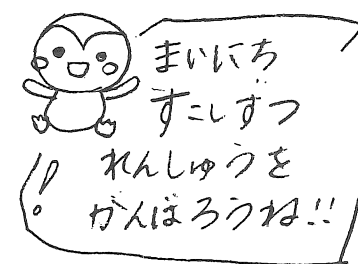 まいにち
すこしずつ
れんしゅうを
がんばろうね!!
!